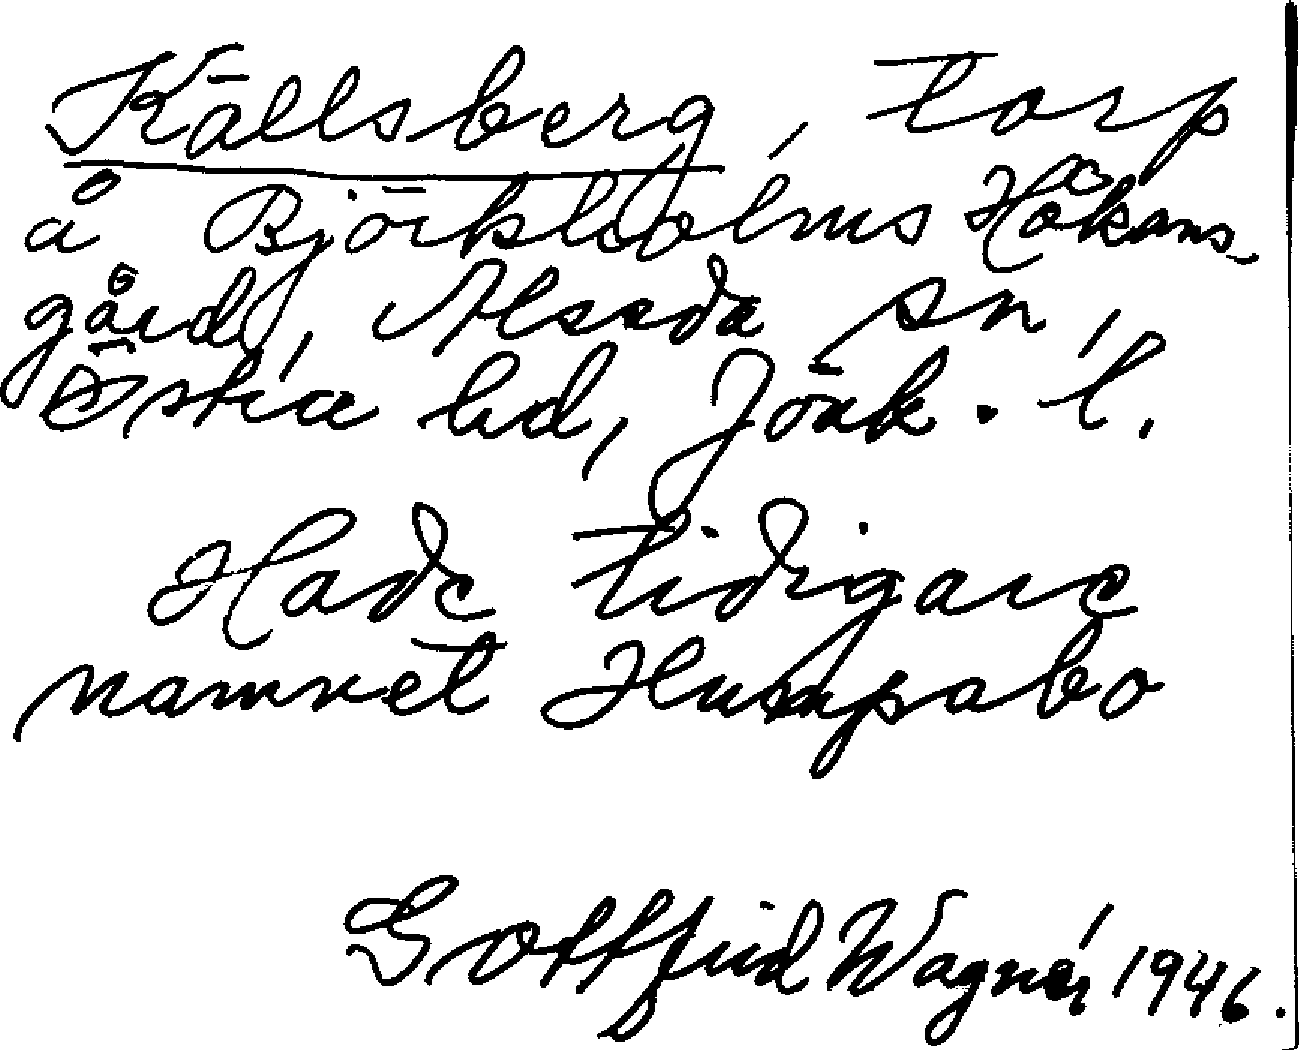 Källsberg, torp
å Björkholms Håkans-
gård, Alseda sn,
Östra hd, Jönk. l.
Hade tidigare
namnet Humpabo
Gottfrid Wagnér 1946.